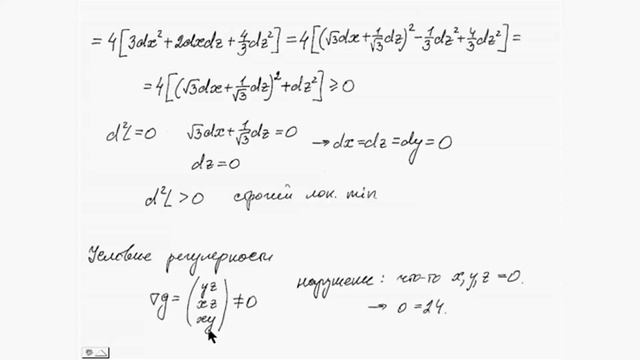 = 4[3dx² + 2dxdz + 4/3 dz²] = 4[(√3dx + 1/√3 dz)² - 1/3 dz² + 4/3 dz²] =
= 4[(√3dx + 1/√3 dz)² + dz²] ≥ 0
d²L = 0 √3dx + 1/√3 dz = 0 → dx = dz = dy = 0
dz = 0
d²L > 0 строгий лок. min
Условие регулярности
∇g = (yz xz xy) ≠ 0 нарушение: что-то x,y,z = 0.
→ 0 = 24.